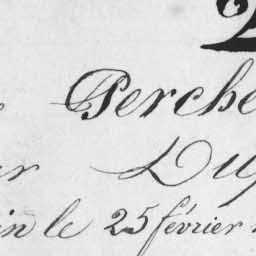 Perche
r Dup
in le 25 février